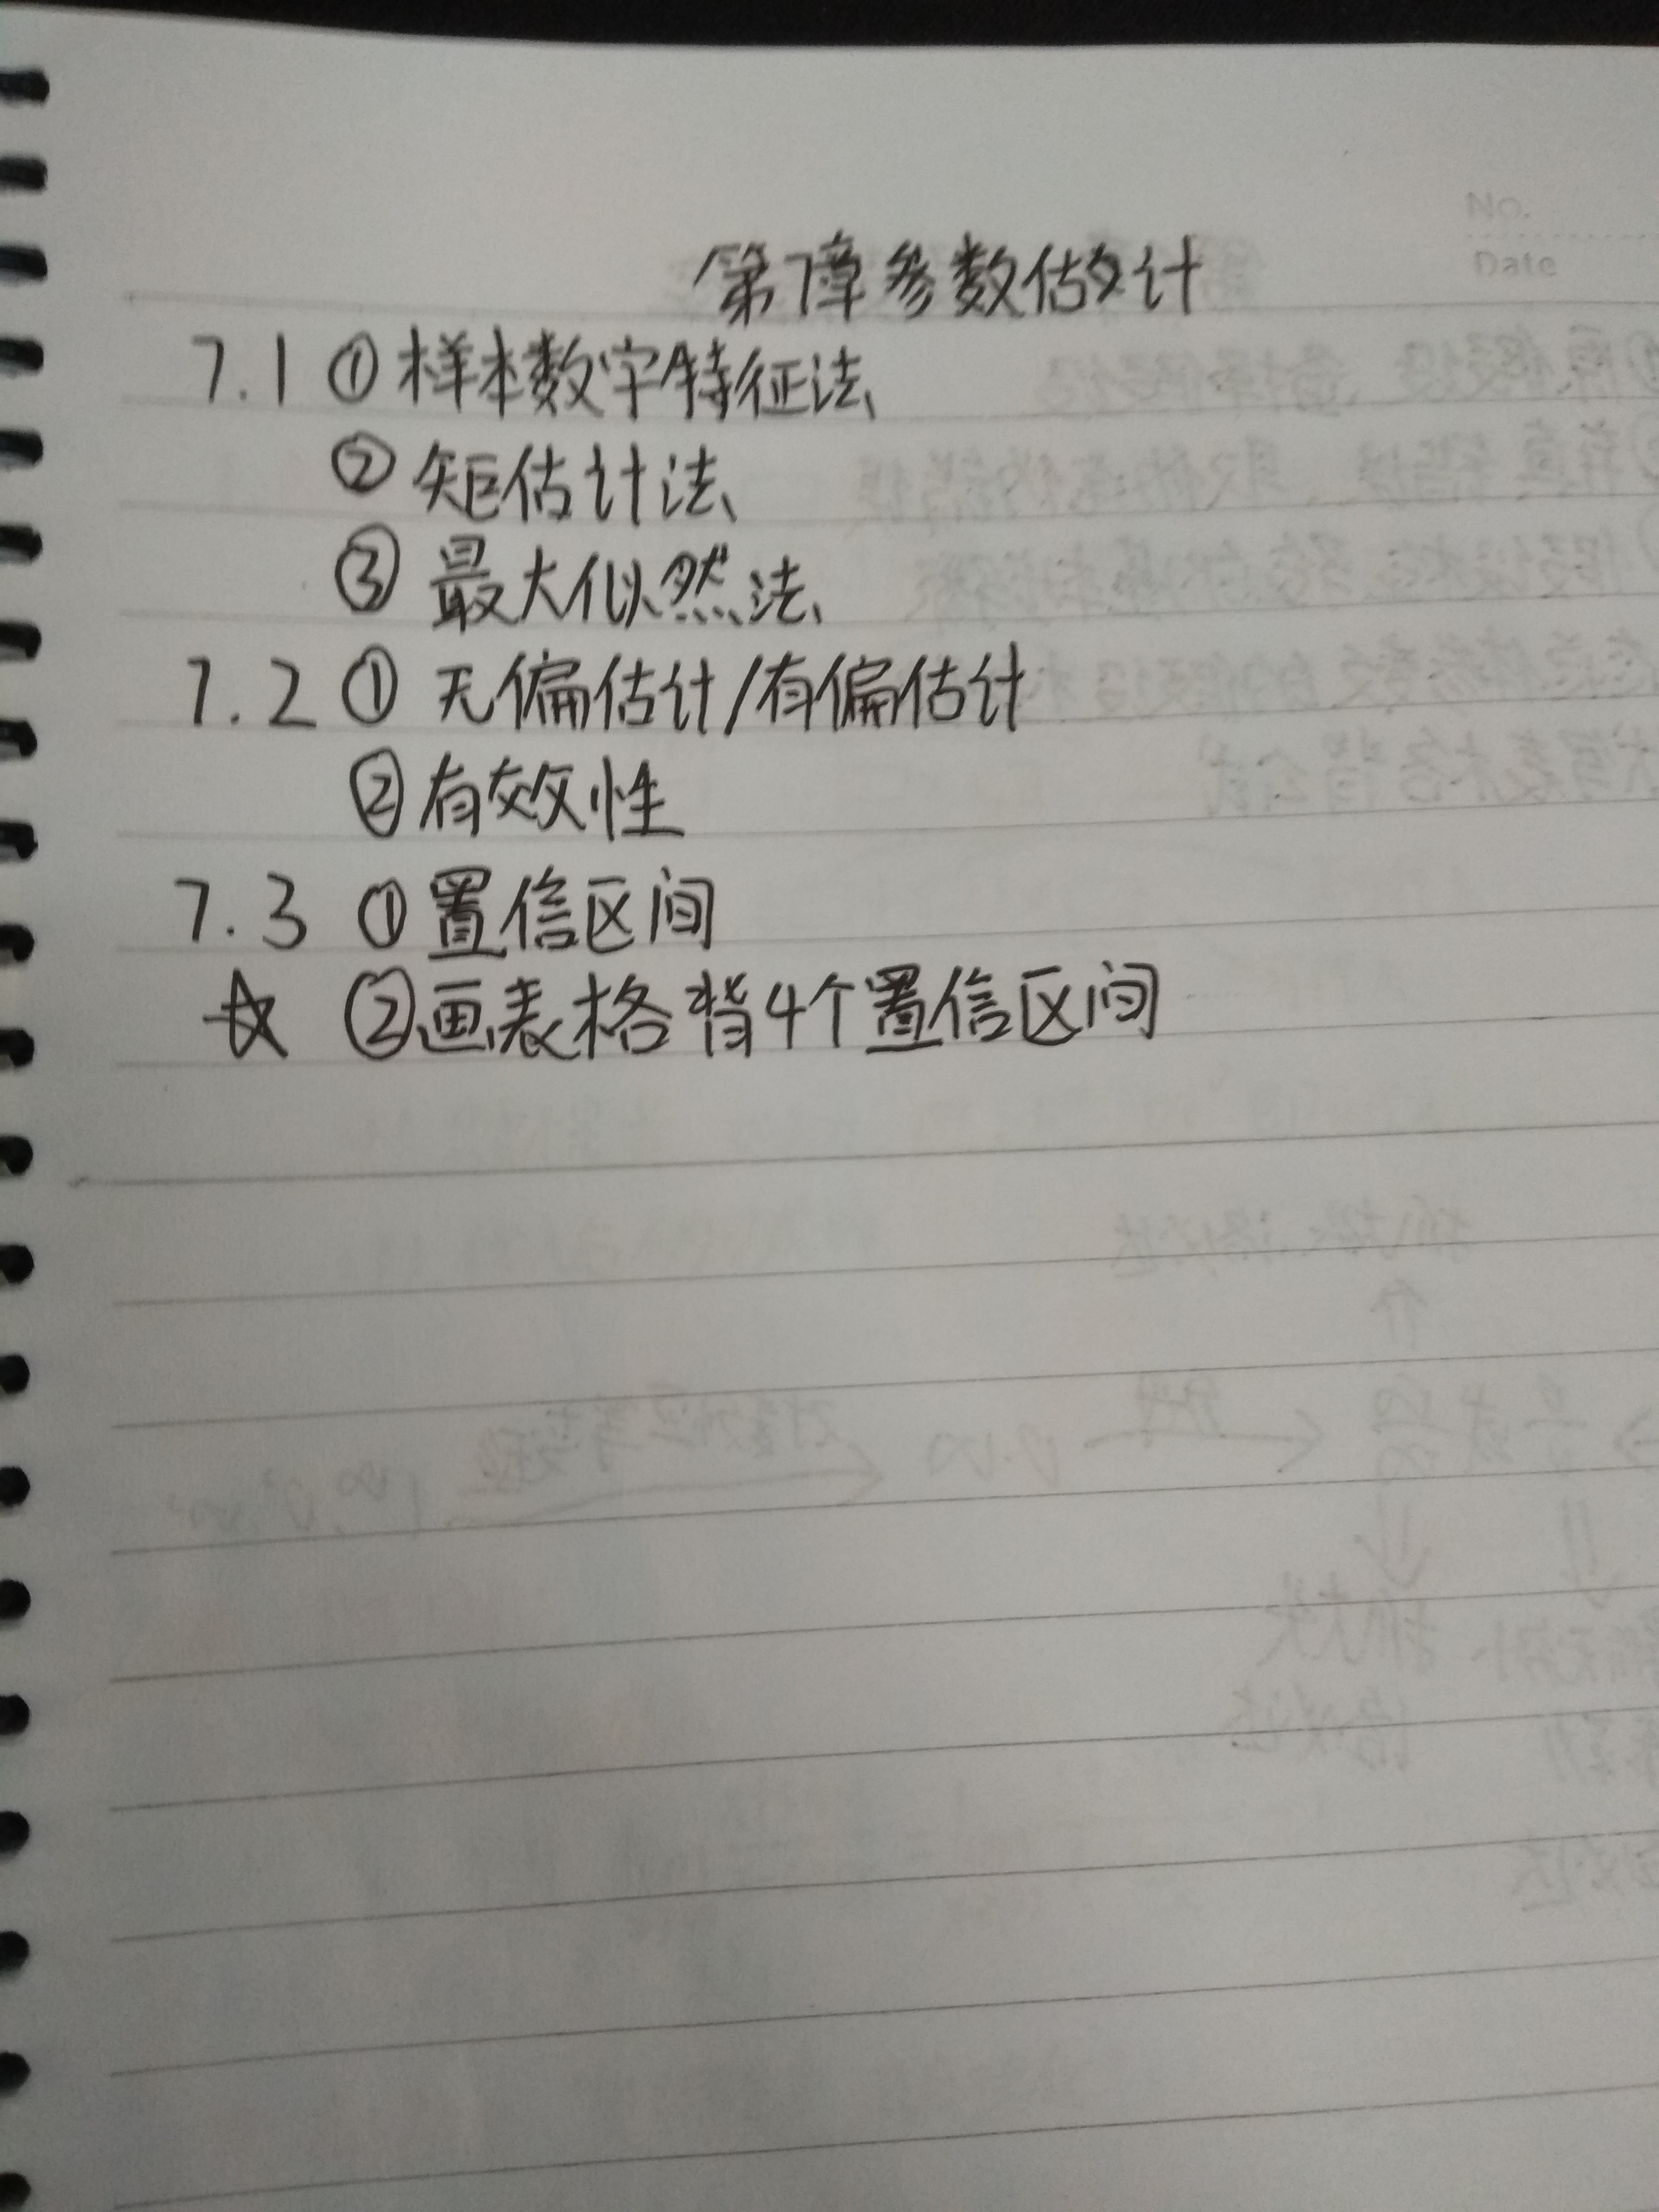 No.
Date
第7章参数估计
7.1 ①样本数字特征法
②矩估计法
③最大似然法
7.2 ①无偏估计/有偏估计
②有效性
7.3 ①置信区间
☆ ②画表格背4个置信区间